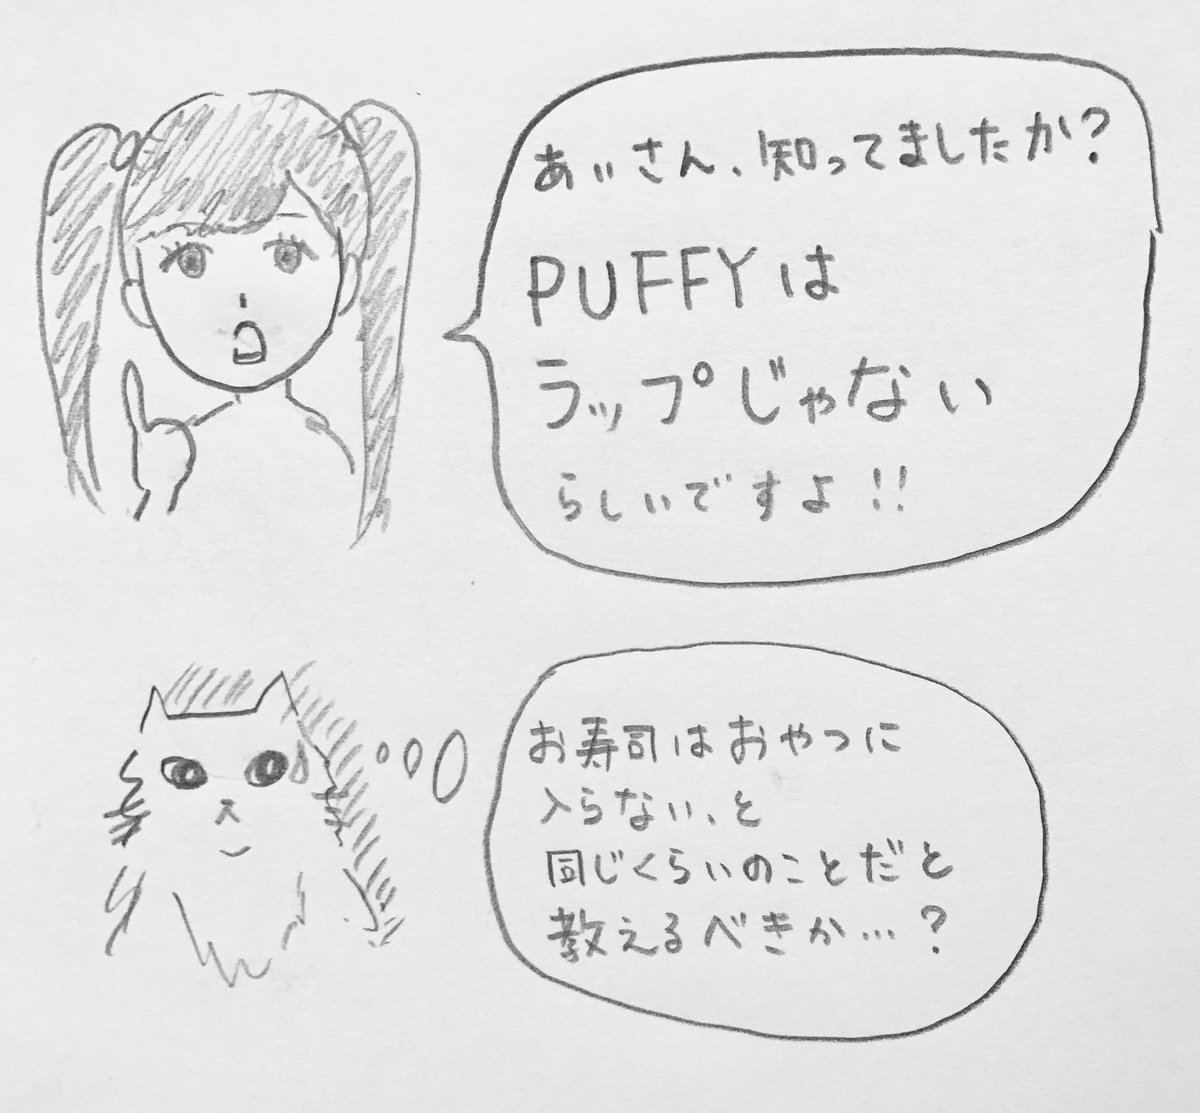 あぃさん、知ってましたか?
PUFFYは
ラップじゃない
らしいですよ!!
お寿司はおやつに
入らない、と
同じくらいのことだと
教えるべきか…?